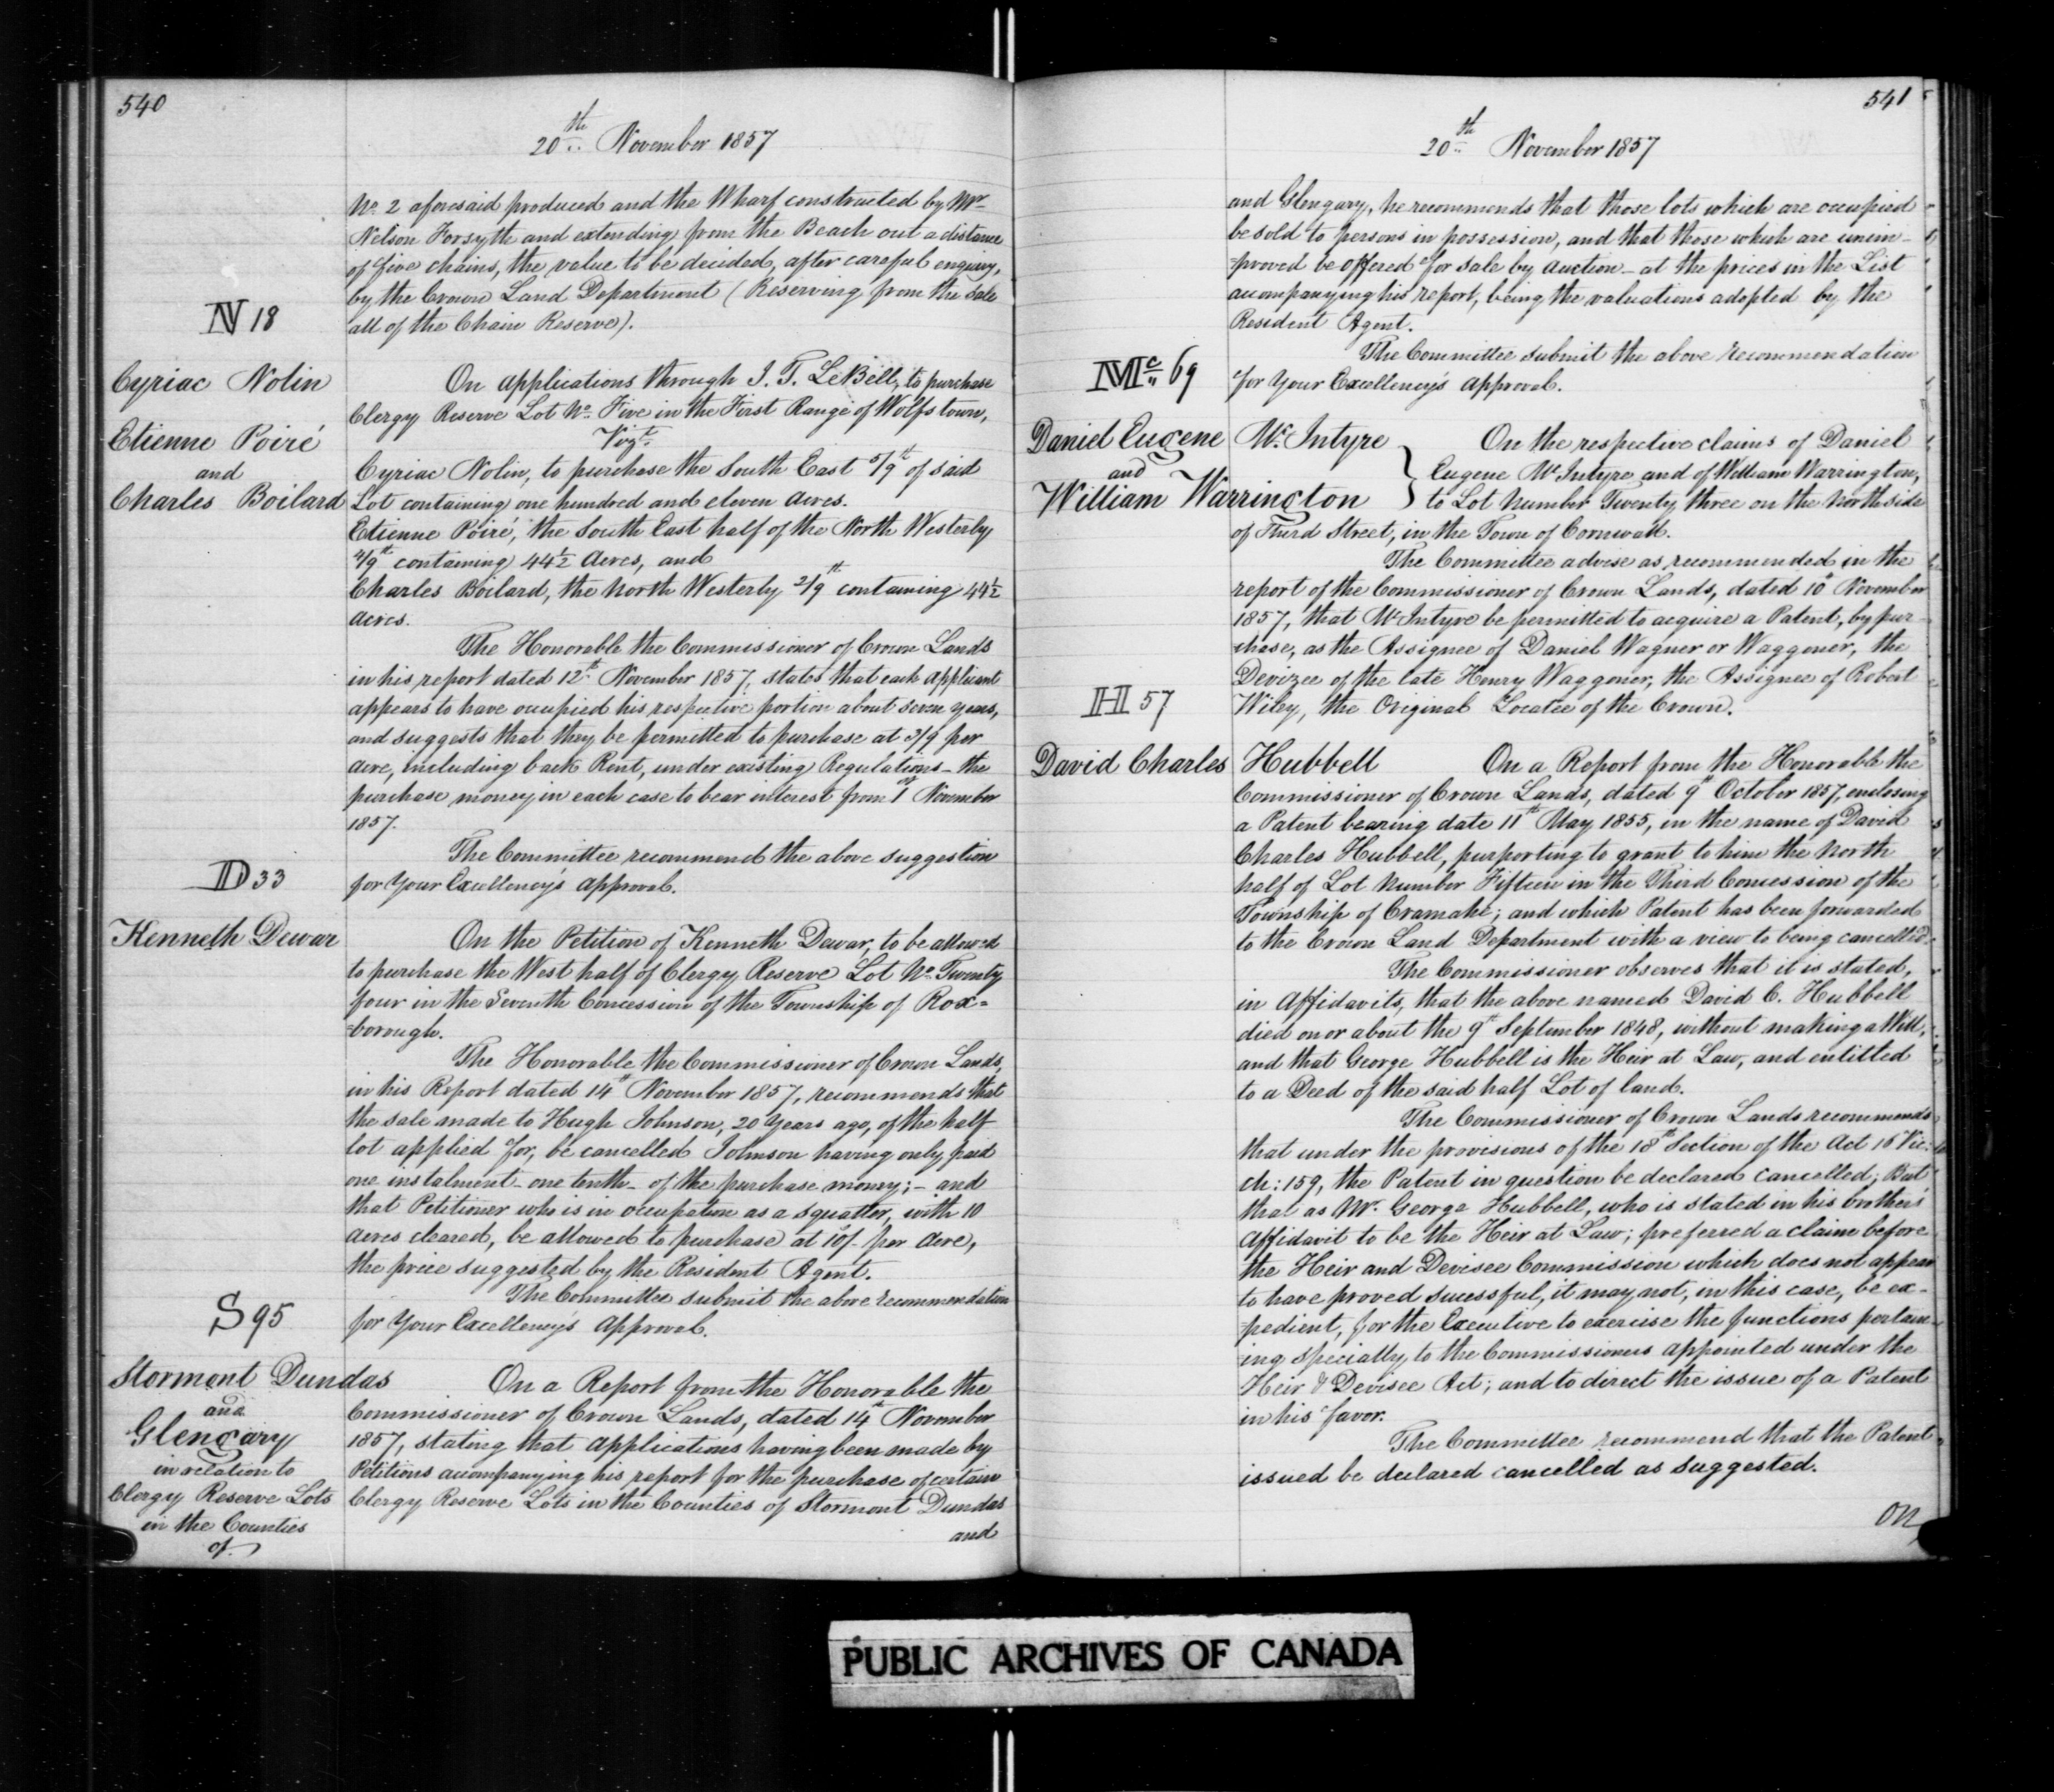 540
20th November 1857
No. 2 aforesaid produced and the Wharf constructed by Mr
Nelson Forsyth and extending from the Beach out a distance
of five chains, the value to be decided, after careful enquiry,
by the Crown Land Department (Reserving from the Sale
all of the Chain Reserve).
N 18
Cyriac Nolin
Etienne Poiré
and
Charles Boilard
On applications through I. T. LeBell, to purchase
Clergy Reserve Lot No. Five in the First Range of Wolfstown,
Vizt.
Cyriac Nolin, to purchase the South East 5/9th of said
Lot containing one hundred and eleven acres.
Etienne Poiré, the South East half of the North Westerly
4/9th containing 44½ Acres, and
Charles Boilard, the North Westerly 2/9th containing 44½
acres.
The Honorable the Commissioner of Crown Lands
in his report dated 12th November 1857, states that each applicant
appears to have occupied his respective portion about seven years,
and suggests that they be permitted to purchase at 3/9 per
acre, including back Rent, under existing Regulations - the
purchase money in each case to bear interest from 1st November
1857.
The Committee recommend the above suggestion
for Your Excellency's approval.
D 33
Kenneth Dewar
On the Petition of Kenneth Dewar, to be allowed
to purchase the West half of Clergy Reserve Lot No. Twenty
four in the Seventh Concession of the Township of Rox=
=borough.
The Honorable the Commissioner of Crown Lands,
in his Report dated 14th November 1857, recommends that
the sale made to Hugh Johnson, 20 Years ago, of the half
lot applied for, be cancelled Johnson having only paid
one instalment - one tenth - of the purchase money; - and
that Petitioner who is in occupation as a squatter, with 10
acres cleared, be allowed to purchase at 10/- per Acre,
the price suggested by the Resident Agent.
The Committee submit the above recommendation
for Your Excellency's Approval.
S 95
Stormont Dundas
and
Glengary
in relation to
Clergy Reserve Lots
in the Counties
of
On a Report from the Honorable the
Commissioner of Crown Lands, dated 14th November
1857, stating that applications having been made by
Petitions accompanying his report for the purchase of certain
Clergy Reserve Lots in the Counties of Stormont Dundas
and
541
20th November 1857
and Glengary, he recommends that those lots which are occupied
be sold to persons in possession, and that those which are unim-
=proved be offered for sale by auction - at the prices in the List
accompanying his report, being the valuations adopted by the
Resident Agent.
The Committee submit the above recommendation
for Your Excellency's approval.
Mc 69
Daniel Eugene McIntyre
and
William Warrington
On the respective claims of Daniel
Eugene McIntyre and of William Warrington,
to Lot Number Twenty three on the North side
of Third Street, in the Town of Cornwall.
The Committee advise as recommended in the
report of the Commissioner of Crown Lands, dated 10th November
1857, that McIntyre be permitted to acquire a Patent, by pur-
chase, as the Assignee of Daniel Wagner or Waggoner, the
Devizee of the late Henry Waggoner, the Assignee of Robert
Wiley, the Original Locatee of the Crown.
H 57
David Charles Hubbell
On a Report from the Honorable the
Commissioner of Crown Lands, dated 9th October 1857, enclosing
a Patent bearing date 11th May 1855, in the name of David
Charles Hubbell, purporting to grant to him the North
half of Lot Number Fifteen in the Third Concession of the
Township of Cramahe; and which Patent has been forwarded
to the Crown Land Department with a view to being cancelled.
The Commissioner observes that it is stated,
in Affidavits, that the above named David C. Hubbell
died on or about the 9th September 1848, without making a Will,
and that George Hubbell is the Heir at Law, and entitled
to a Deed of the said half Lot of land.
The Commissioner of Crown Lands recommends
that under the provisions of the 18th Section of the Act 16 Vic:
ch: 159, the Patent in question be declared cancelled; But
that as Mr. George Hubbell, who is stated in his brother's
Affidavit to be the Heir at Law; preferred a claim before
the Heir and Devisee Commission which does not appear
to have proved sucessful, it may not, in this case, be ex-
=pedient, for the Executive to exercise the functions pertain-
ing specially to the Commissioners appointed under the
Heir & Devisee Act; and to direct the issue of a Patent
in his favor.
The Committee recommend that the Patent
issued be declared cancelled as suggested.
On
PUBLIC ARCHIVES OF CANADA